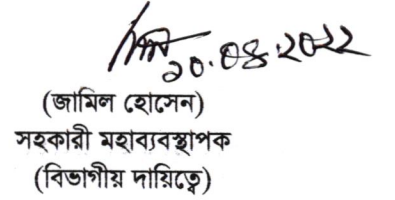 ২০.০৪.২০২২
(জামিল হোসেন)
সহকারী মহাব্যবস্থাপক
(বিভাগীয় দায়িত্বে)